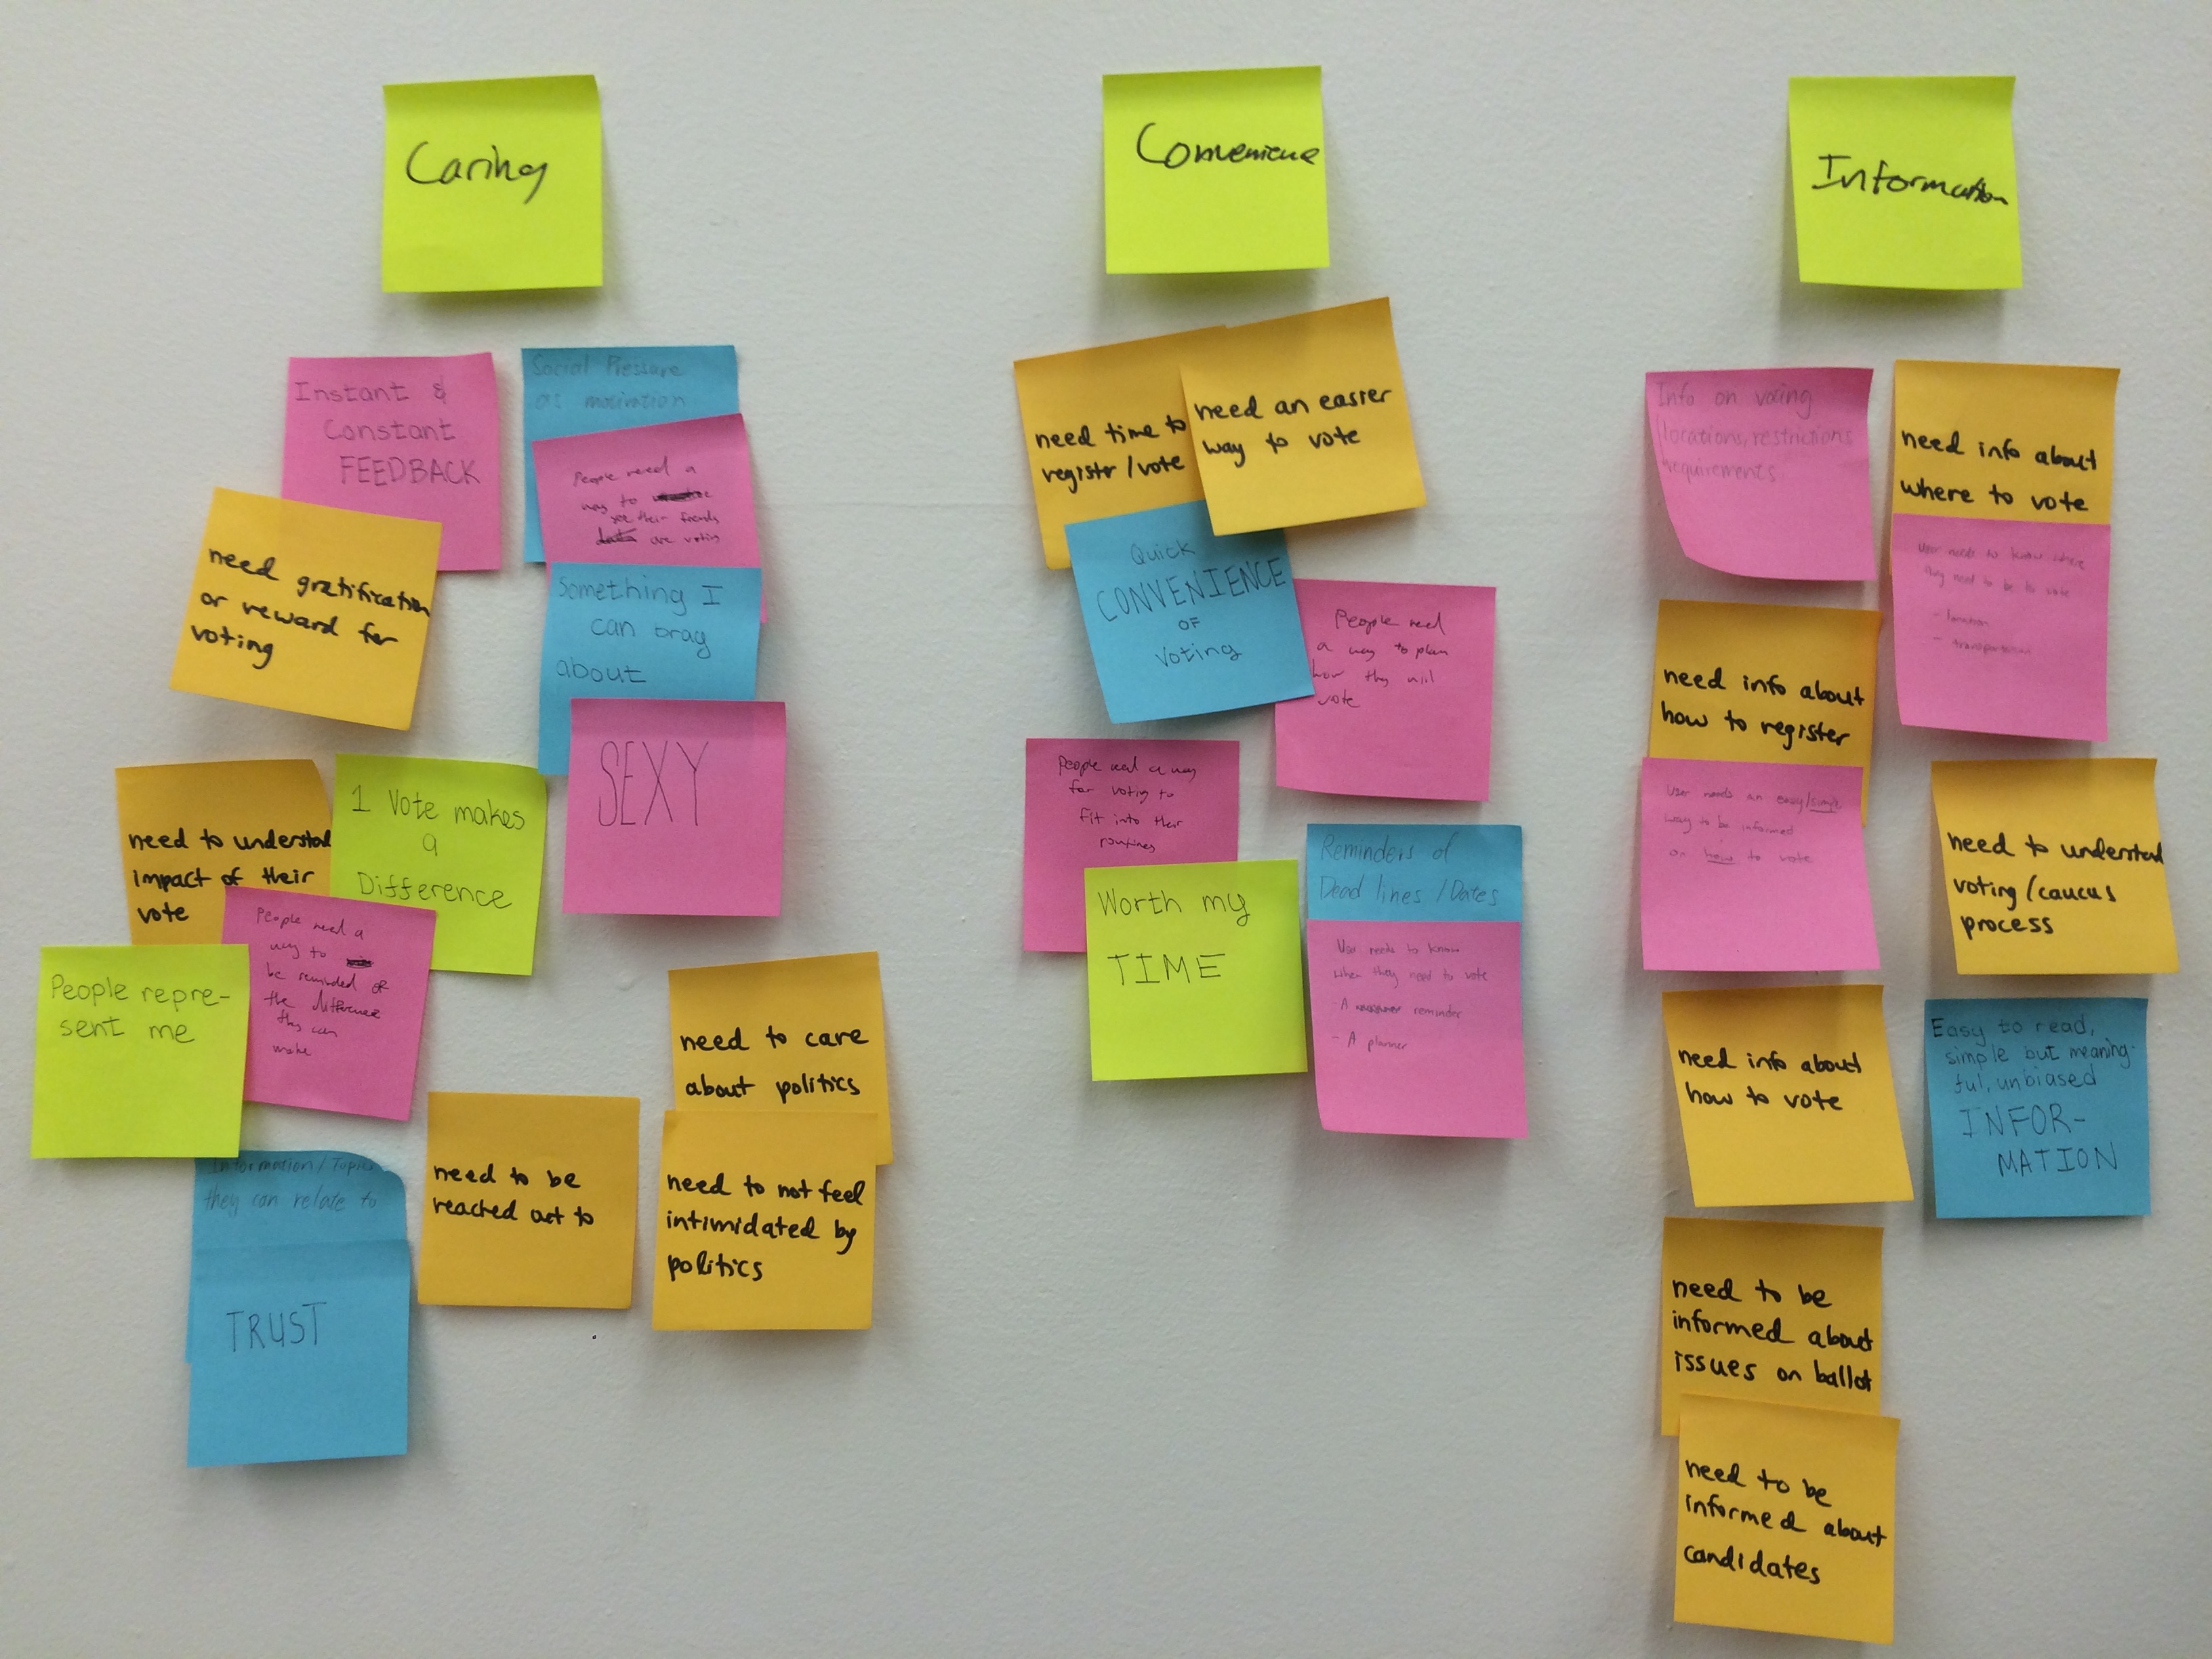 Caring
Instant &
Constant
FEEDBACK
Social Pressure
as motivation
People need a
way to
see their friends
are voting
need gratification
or reward for
voting
Something I
can brag
about
SEXY
need to understand
impact of their
vote
1 Vote makes
a
Difference
People need a
way to
be reminded of
the difference
they can
make
People repre-
sent me
need to care
about politics
need to not feel
intimidated by
politics
need to be
reached out to
Information/Topic
they can relate to
TRUST
Convenience
need time to
registr/vote
need an easier
way to vote
Quick
CONVENIENCE
OF
Voting
People need
a way to plan
how they will
vote
People need a way
for voting to
fit into their
routines
Worth my
TIME
Reminders of
Dead lines /Dates
User needs to know
when they need to vote
- A reminder
- A planner
Information
Info on voting
locations, restrictions
requirements
need info about
where to vote
User needs to know where
they need to be to vote
- location
- transportation
need info about
how to register
User needs an easy/simple
way to be informed
on how to vote
need to understand
voting/caucus
process
need info about
how to vote
Easy to read,
simple but meaning-
ful, unbiased
INFOR-
MATION
need to be
informed about
issues on ballot
need to be
informed about
candidates